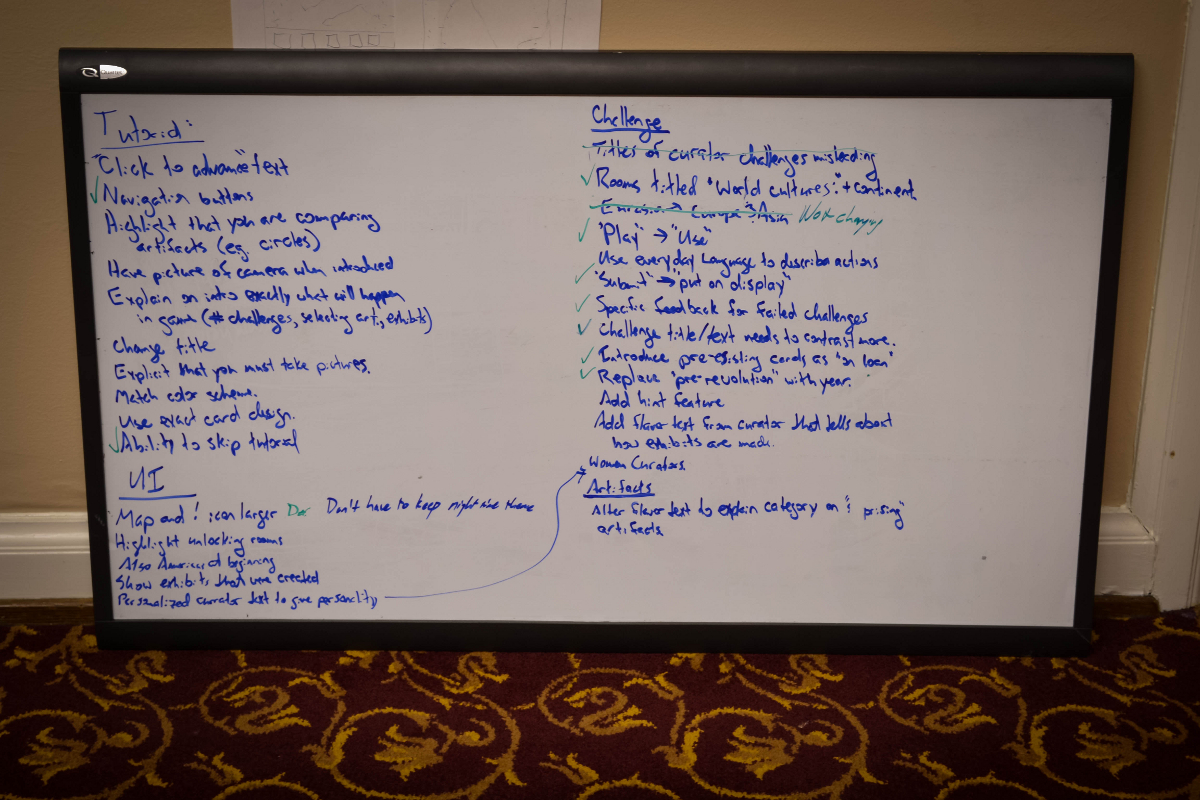 Quartet
Tutorial:
"Click to advance" text
✓ Navigation buttons
Highlight that you are comparing
artifacts (e.g. circles)
Have picture of camera when introduced
Explain on intro exactly what will happen
in game (# challenges, selecting art., exhibits)
Change title
Explicit that you must take pictures.
Match color scheme.
Use exact card design.
✓ Ability to skip tutorial
UI
Map and ! icon larger
Don't have to keep night time theme
Highlight unlocking rooms
Also Americas at beginning
Show exhibits that were created
Personalized curator text to give personality
Challenge
Titles of curator challenges misleading
✓ Rooms titled "World cultures:" + continent
Eurasia → Europe + Asia Not changing
✓ "Play" → "Use"
Use everyday language to describe actions
✓ "Submit" → "put on display"
✓ Specific feedback for failed challenges
✓ Challenge title/text needs to contrast more.
✓ Introduce pre-existing cards as "on loan"
✓ Replace "pre-revolution" with year.
Add hint feature
Add flavor text from curator that tells about
how exhibits are made.
Women Curators.
Artifacts
Alter flavor text to explain category on
artifacts